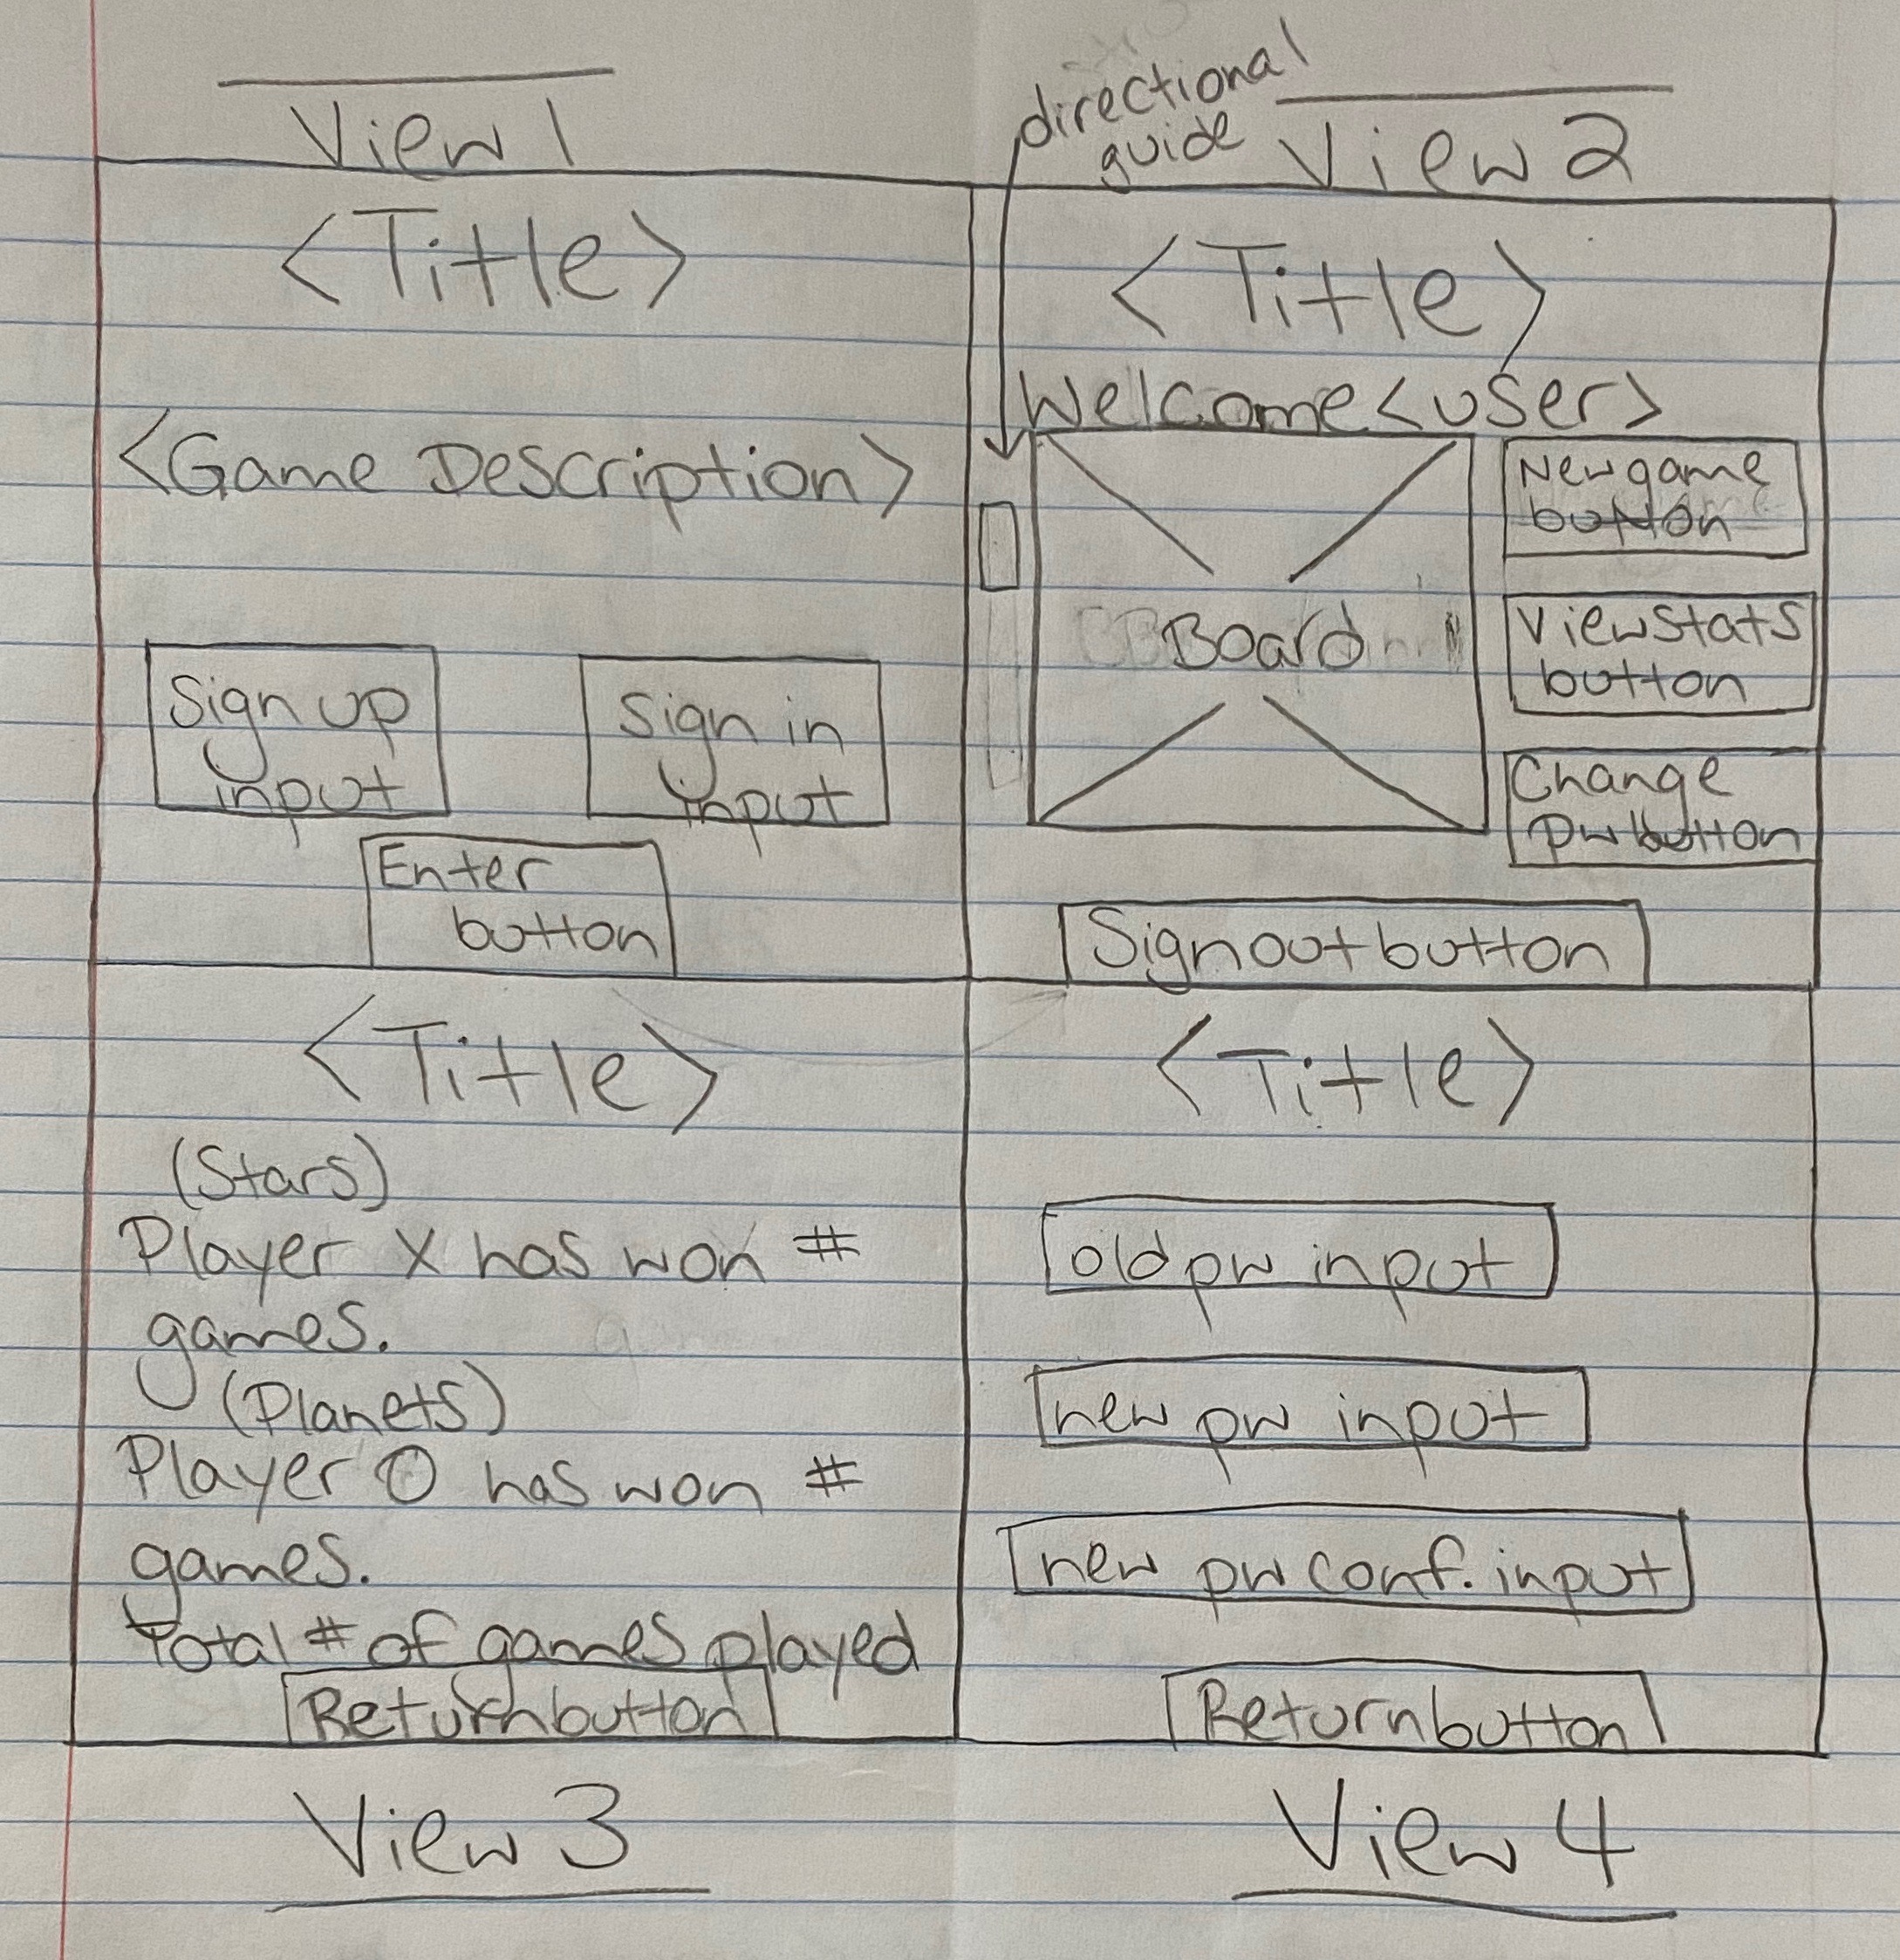 View 1
<Title>
<Game Description>
Sign up
input
Sign in
input
Enter
button
directional
guide
View 2
<Title>
Welcome <user>
Board
New game
button
View stats
button
Change
pw button
Sign out button
<Title>
(Stars)
Player X has won #
games.
(Planets)
Player O has won #
games.
Total # of games played
Return button
View 3
<Title>
old pw input
new pw input
new pw conf. input
Return button
View 4